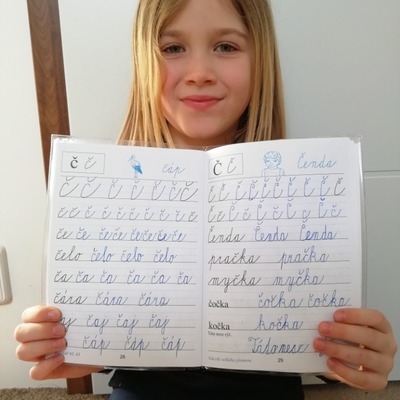 č č čáp
Č Č Č Č Č Č
č č č č č č č č č
če če čeče čečeče
čelo čelo čelo čelo
ča ča ča ča ča ča
čára čára čára
čaj čaj čaj
čáp čáp čáp
28
Č Č Čenda
Č Č Č Č Č Č Č Č Č
Čenda Čenda Čenda
pračka pračka
myčka myčka
čočka čočka čočka
kočka kočka
29